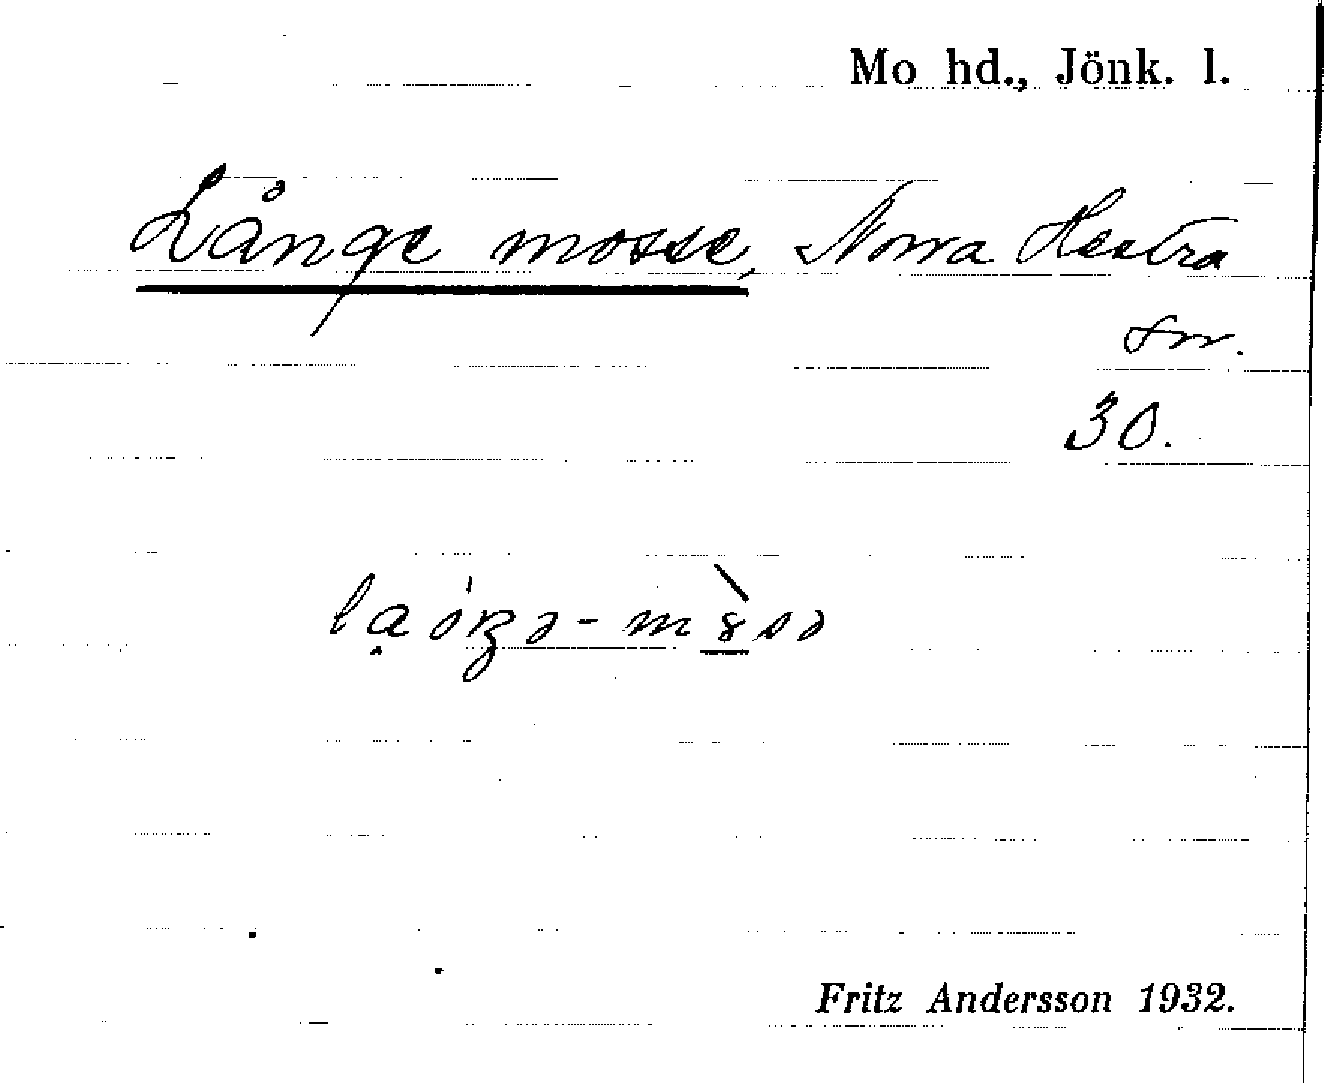 Mo hd., Jönk. l.
Långe mosse, Norra Hestra
sn.
30.
Fritz Andersson 1932.